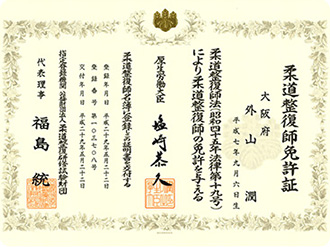 柔道整復師免許証
大阪府
外山 潤
平成七年九月六日生
柔道整復師法(昭和四十五年法律第十九号)
により柔道整復師の免許を与える
厚生労働大臣 塩崎恭久
柔道整復師名簿に登録したことを証明し、免許証を交付する
登録年月日 平成二十九年五月二十二日
登録番号 第一〇三七〇八号
交付年月日 平成二十九年五月二十二日
指定登録機関 公益財団法人柔道整復研修試験財団
代表理事 福島 統